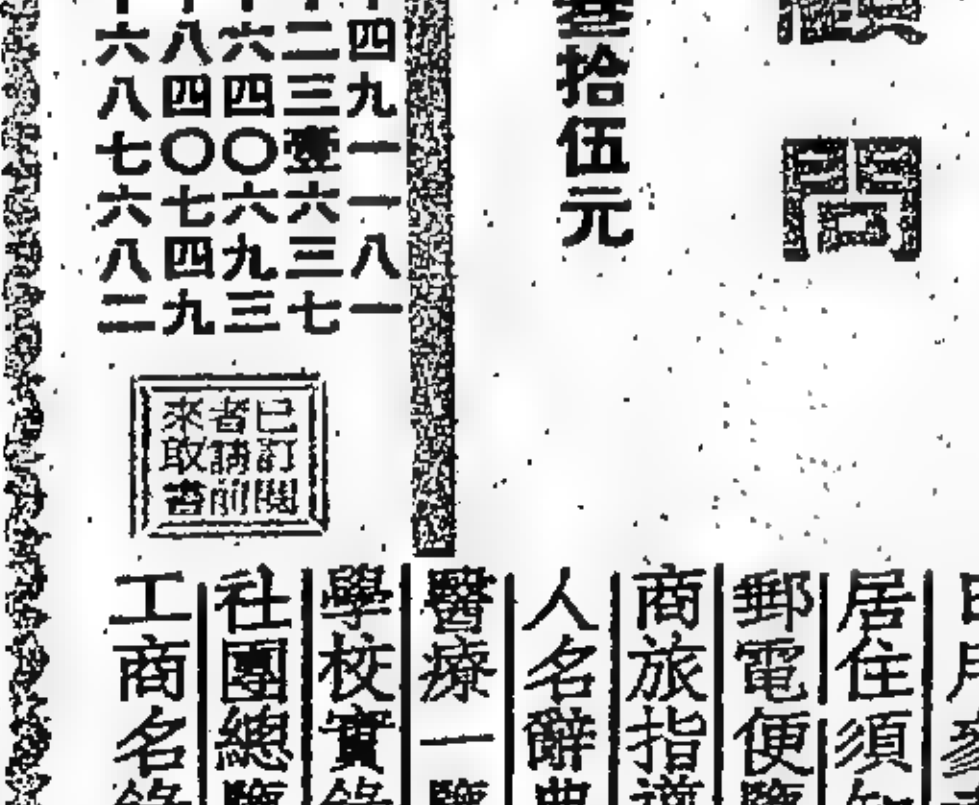 問
拾伍元
四九一一八一
二三壹六三七
六四〇六九三
八四〇七四九
六八七六八二
已訂閱
者請前
來取書
居住須知
郵電便覽
商旅指導
人名辭典
醫療一覽
學校實錄
社團總覽
工商名錄